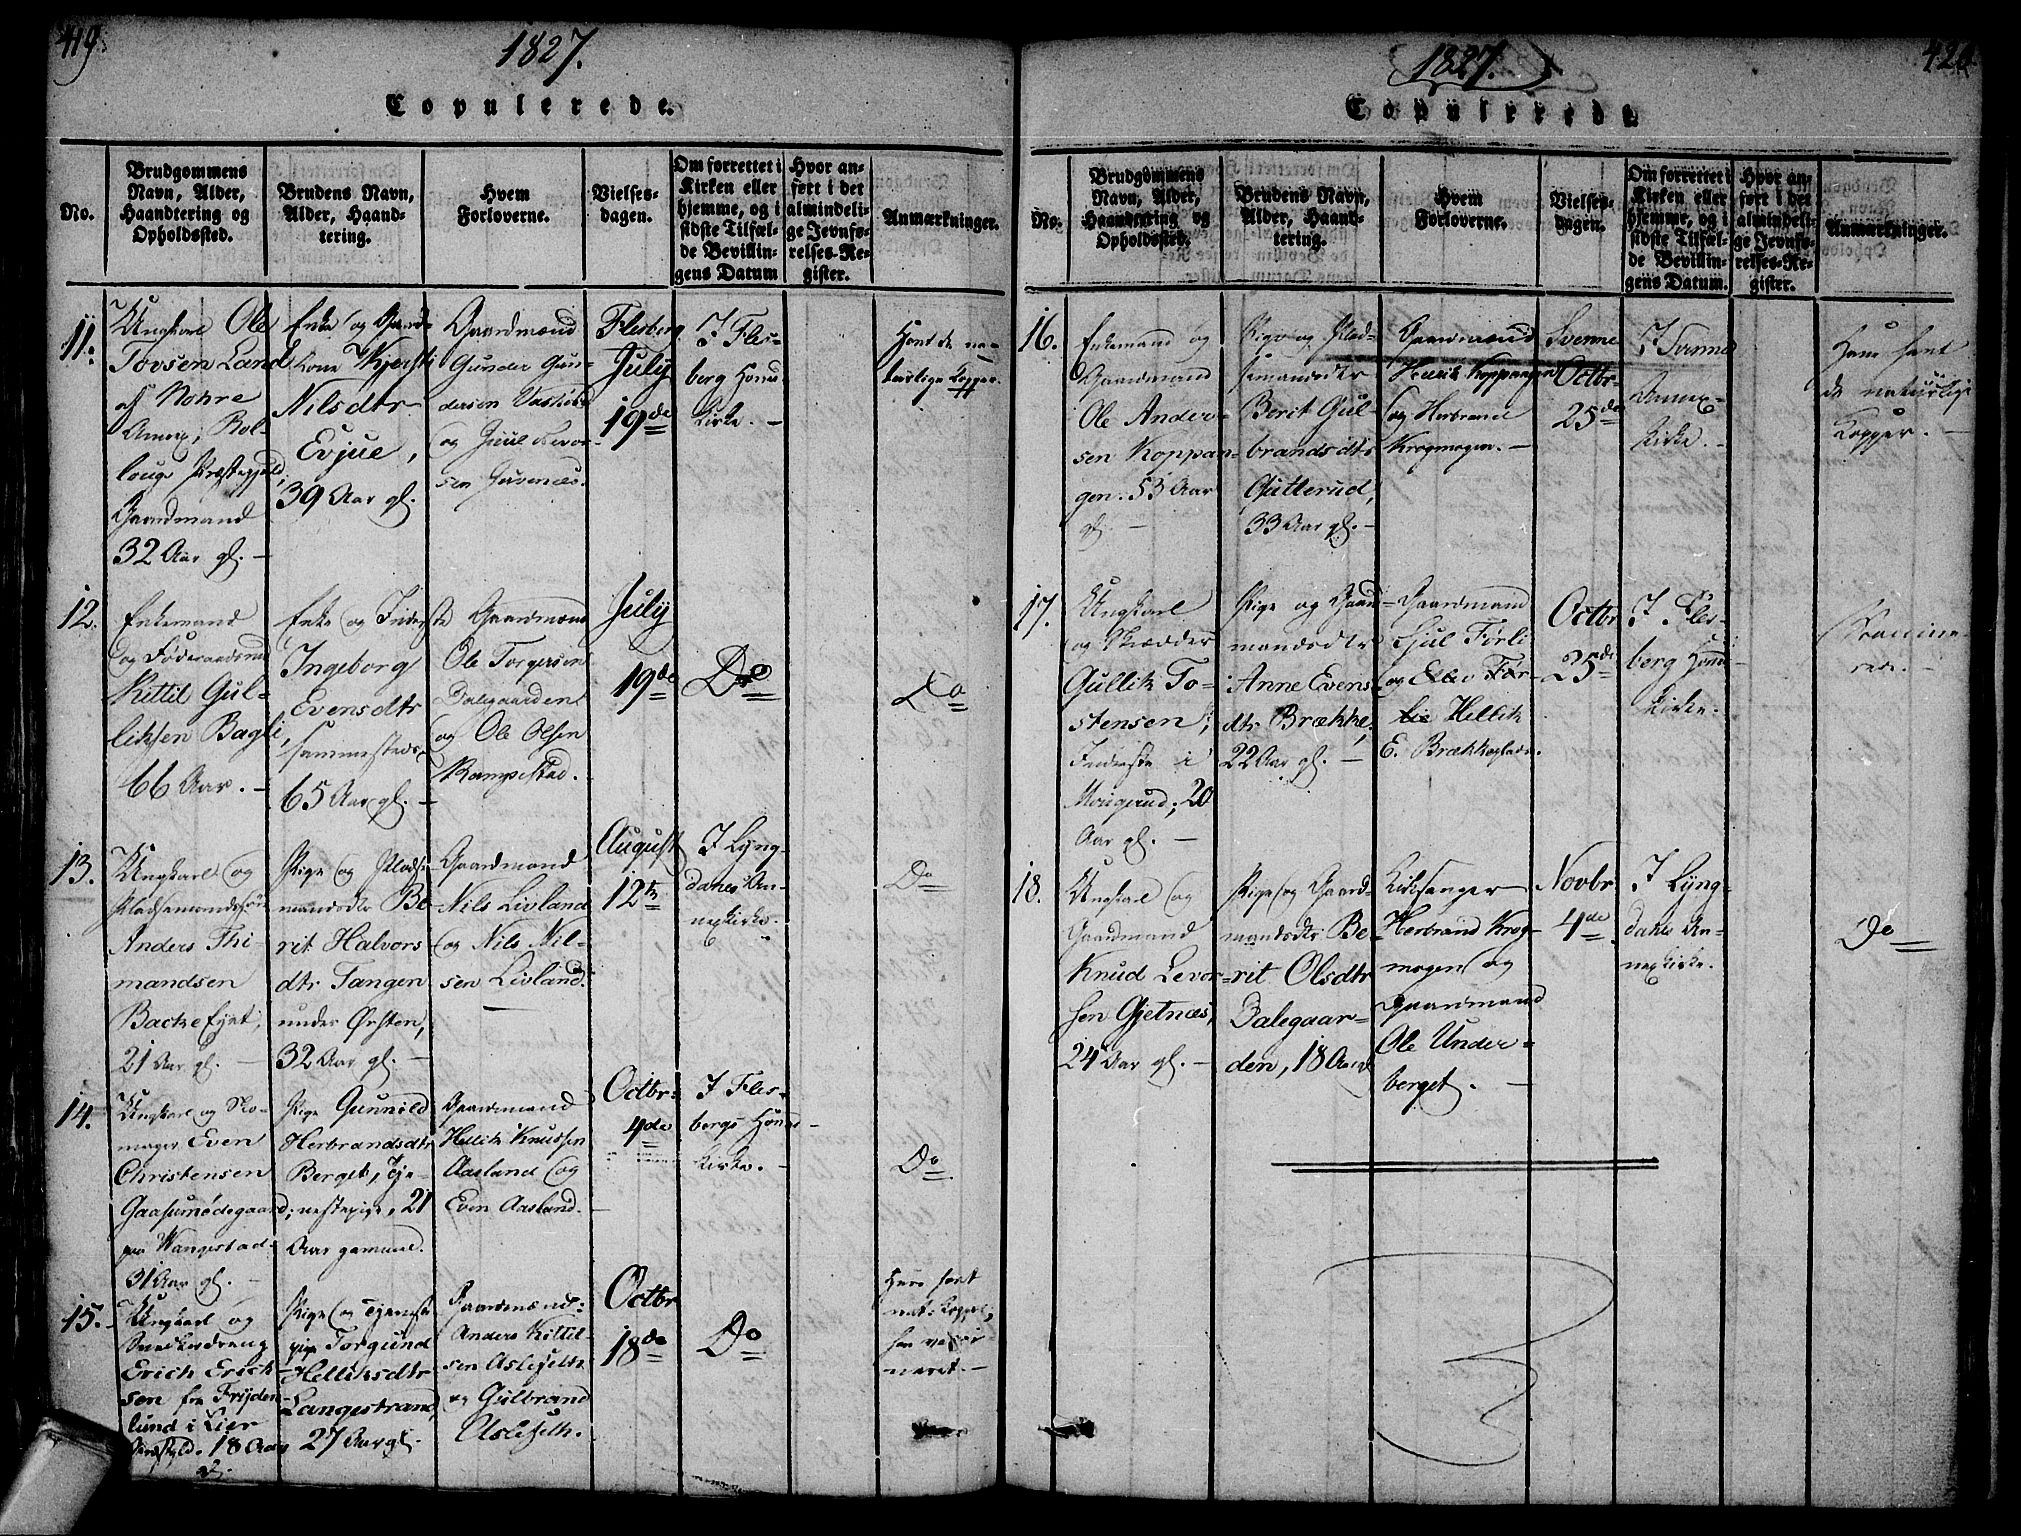 419
1827.
Copulerede.
No.
Brudgommens
Navn, Alder,
Haandtering og
Opholdssted.
Brudens Navn,
Alder, Haand-
tering.
Hvem
Forloverne.
Vielses-
dagen.
Om forrettet i
Kirken eller
hjemme, og i
sidste Tilfæl-
de Bevillin-
gens Datum
Hvor an-
ført i det
almindeli-
ge Jevnfø-
relses-Re-
gister.
Anmærkninger.
11.
Ungkarl Ole
Tovsen Land
af Nohre
Annex, Rol-
lougs Præstegjeld,
Gaardmand
32 Aar gl. —
Enke og Gaard-
kone Kjersti
Nilsdtr
Evjue,
39 Aar gl.
Gaardmænd
Gunder Gun-
dersen
og Juul
sen Juvenæs.
Flesberg
July
19de
I Fles-
berg Hoved
Kirke. —
Havt de na-
turlige Kopper.
12.
Enkemand
og Føderaadsmand
Kittil Gul-
liksen Bagli,
66 Aar. —
Enke og Inderste
Ingeborg
Evensdtr
sammesteds,
65 Aar gl. —
Gaardmænd
Ole Torgersen
Dalegaarden
og Ole Olsen
Rampestad.
July
19de
Do
Do
13.
Ungkarl og
Pladsemandssøn
Anders Thi-
mandsen
Backe Eyet,
21 Aar gl. —
Pige og Pladse-
mandsdtr Be-
rit Halvors
dtr Tangen
under Ørsten,
32 Aar gl. —
Gaardmænd
Nils Livland
og Nils Nil-
sen Livland.
August
12te
I Lyng-
dals An-
nexkirke.
Do
14.
Ungkarl og Sko-
mager Even
Christensen
Gaasumødegaard;
paa Wangestad.
31 Aar gl. —
Pige Gunnild
Herbrandsdtr
Berget, Tje-
nestepige, 21
Aar gammel.
Gaardmænd
Hellik Knussen
Aasland og
Even Aasland.
Octbr:
4de
I Fles-
bergs Hoved-
kirke. —
Do
15.
Ungkarl og
Erich Erich-
sen fra Frijden-
lund i Lier
Præstgjld. 18 Aar
gl.
Pige og Tjeneste
pige Torgund
Helliksdtr
Langestrand,
27 Aar gl.
Gaardmænd:
Anders Kittil-
sen Aslefeth
og Gulbrand
Aslefeth.
Octbr
18de
Do
Hun havt
nat: Kopper,
han vacci-
neret. —
420
1827.
Copulerede.
No.
Brudgommens
Navn, Alder,
Haandtering og
Opholdssted.
Brudens Navn,
Alder, Haand-
tering.
Hvem
Forloverne.
Vielses-
dagen.
Om forrettet i
Kirken eller
hjemme, og i
sidste Tilfæl-
de Bevillin-
gens Datum.
Hvor an-
ført i det
almindeli-
ge Jevnfø-
relses-Re-
gister.
Anmærkninger.
16.
Enkemand og
Gaardmand
Ole Ander-
sen Koppan-
gen. 53 Aar
gl. —
Pige og Plad-
semandsdtr
Berit Gul-
brandsdtr
Gutterud,
33 Aar gl. —
Gaardmænd
Henrik Koppangen
og Herbrand
Krogmogen. —
Svenne
Octbr
25de
I Svenne
Annex-
kirke. —
Have havt
de naturlige
Kopper. —
17.
Ungkarl
og Skrædder
Gullik To-
stensen,
Inderste i
Morigrud, 20
Aar gl. —
Pige og Gaard-
mandsdtr
Anne Evens-
dtr Brække,
22 Aar gl. —
Gaardmand
Sjul Førli
og Hellik
E. Brækkeplads.
Octbr
25de
I Fles-
berg Hoved-
kirke.
Vaccine-
rede. —
18.
Ungkarl og
Gaardmand
Knud Levor-
sen Gjetnæs,
24 Aar gl. —
Pige og Gaard-
mandsdtr Be-
rit Olsdtr
Dalegaar-
den, 18 Aar gl
Kirksanger
Herbrand Krog-
mogen og
Gaardmand
Ole Under-
berget. —
Novbr
4de
I Lyng-
dals An-
nexkirke.
Do